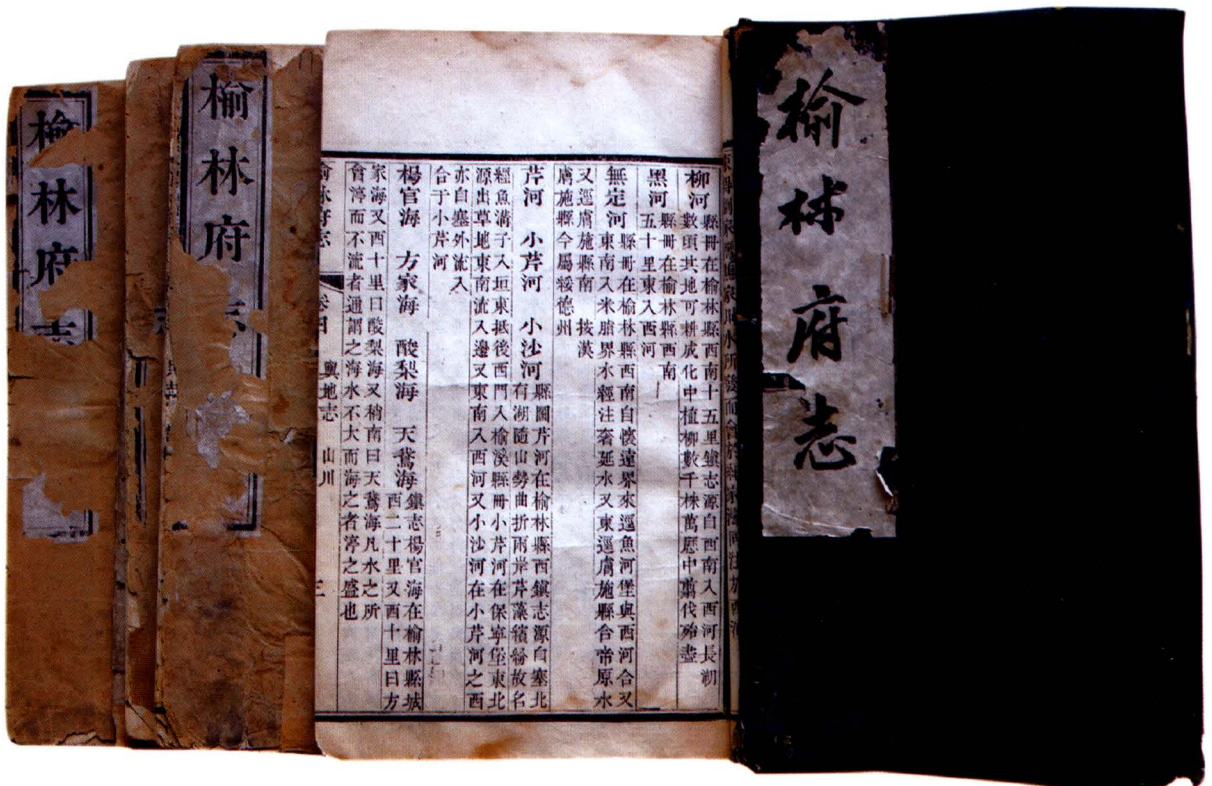 榆林府志
柳河
縣冊在榆林縣西南十五里鎮志源自西南入西河長湖
數頃其地可耕成化中植柳數千株萬歷中翦伐殆盡
黑河
縣冊在榆林縣西南
五十里東入西河
無定河
縣冊在榆林縣西南自懷遠界來逕魚河堡與西河合又
東南入米脂界水經注奢延水又東逕膚施縣合帝原水
又逕膚施縣南 按漢
膚施縣今屬綏德州
芹河 小芹河 小沙河
縣圖芹河在榆林縣西鎮志源自塞北
有湖隨山勢曲折兩岸芹藻繽紛故名
經魚溝子入垣東抵後西門入榆溪縣冊小芹河在保寧堡東北
源出草地東南流入邊又東南入西河又小沙河在小芹河之西
亦自塞外流入
合于小芹河
楊官海 方家海 酸梨海 天鵞海
鎮志楊官海在榆林縣城
西二十里又西十里曰方
家海又西十里曰酸梨海又稍南曰天鵞海凡水之所
瀦渟而不流者通謂之海水不大而海之者渟之盛也
榆林府志 輿地志 山川 三
榆林府志
榆林府志